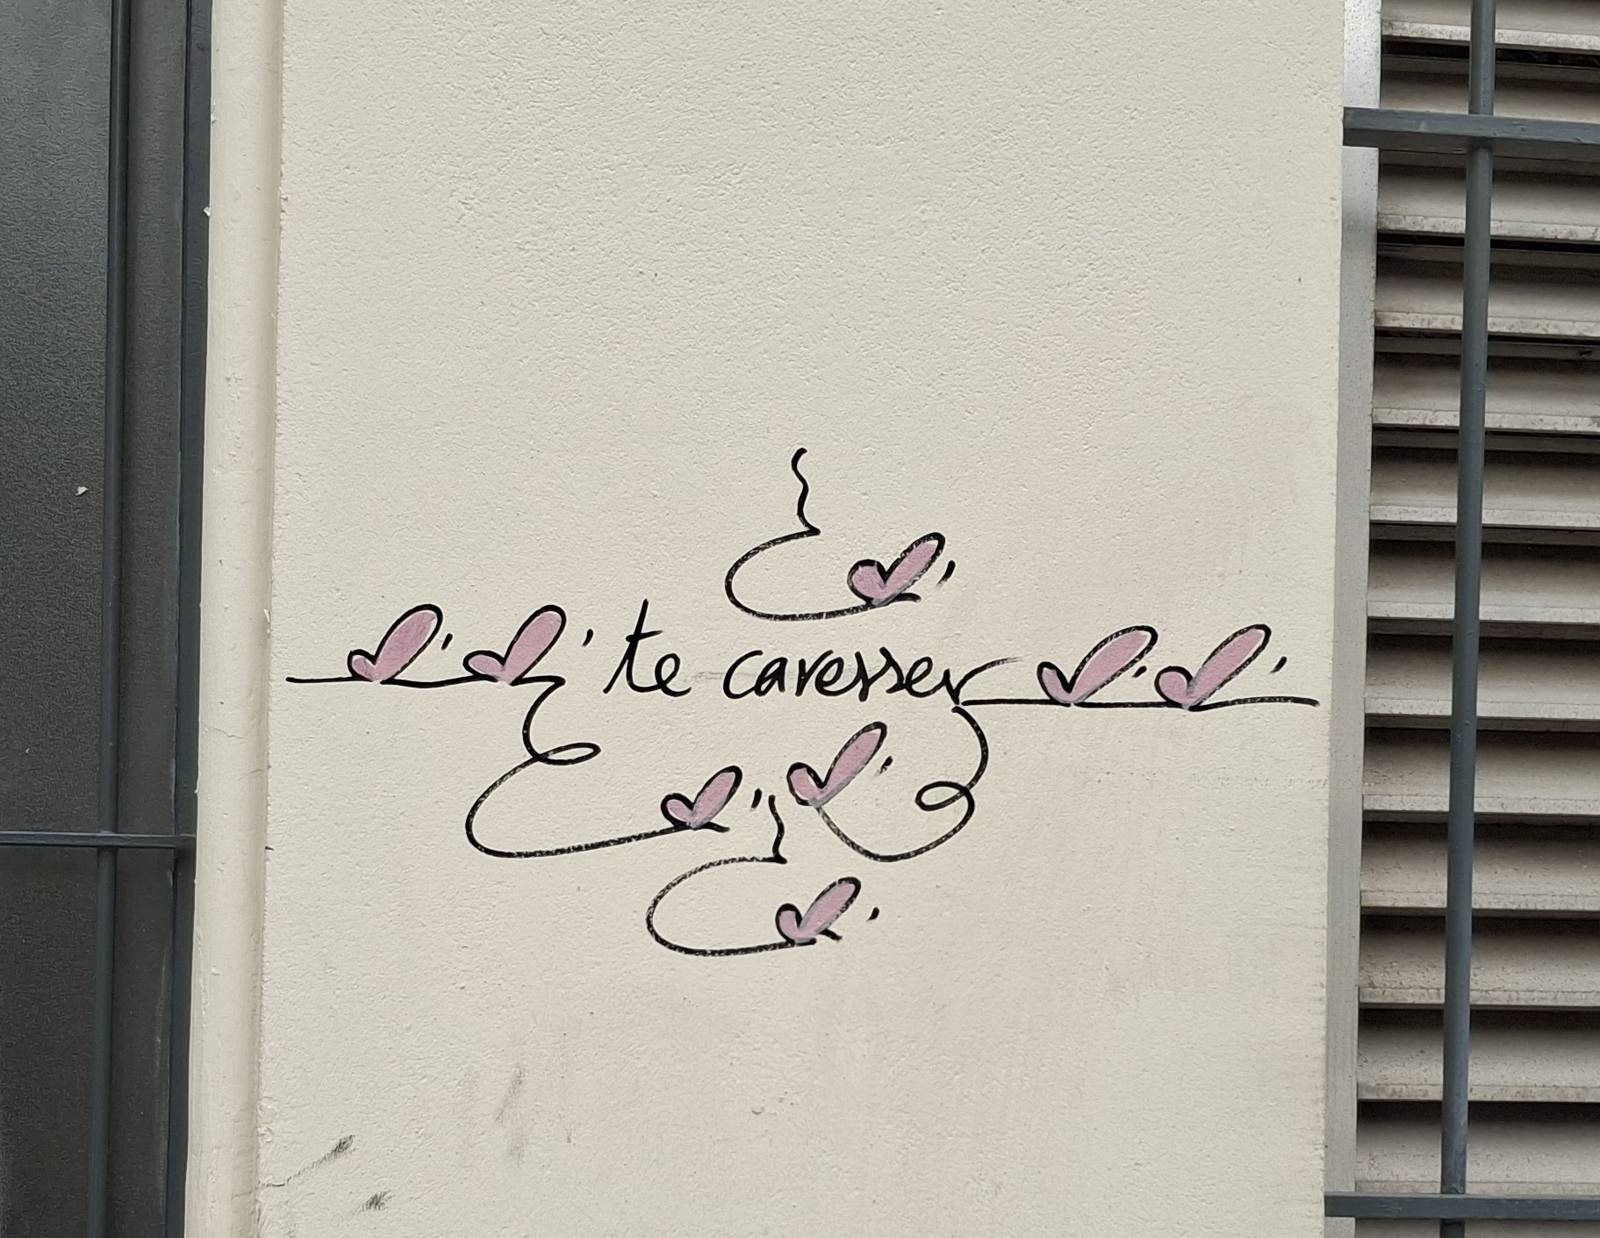 te caresser